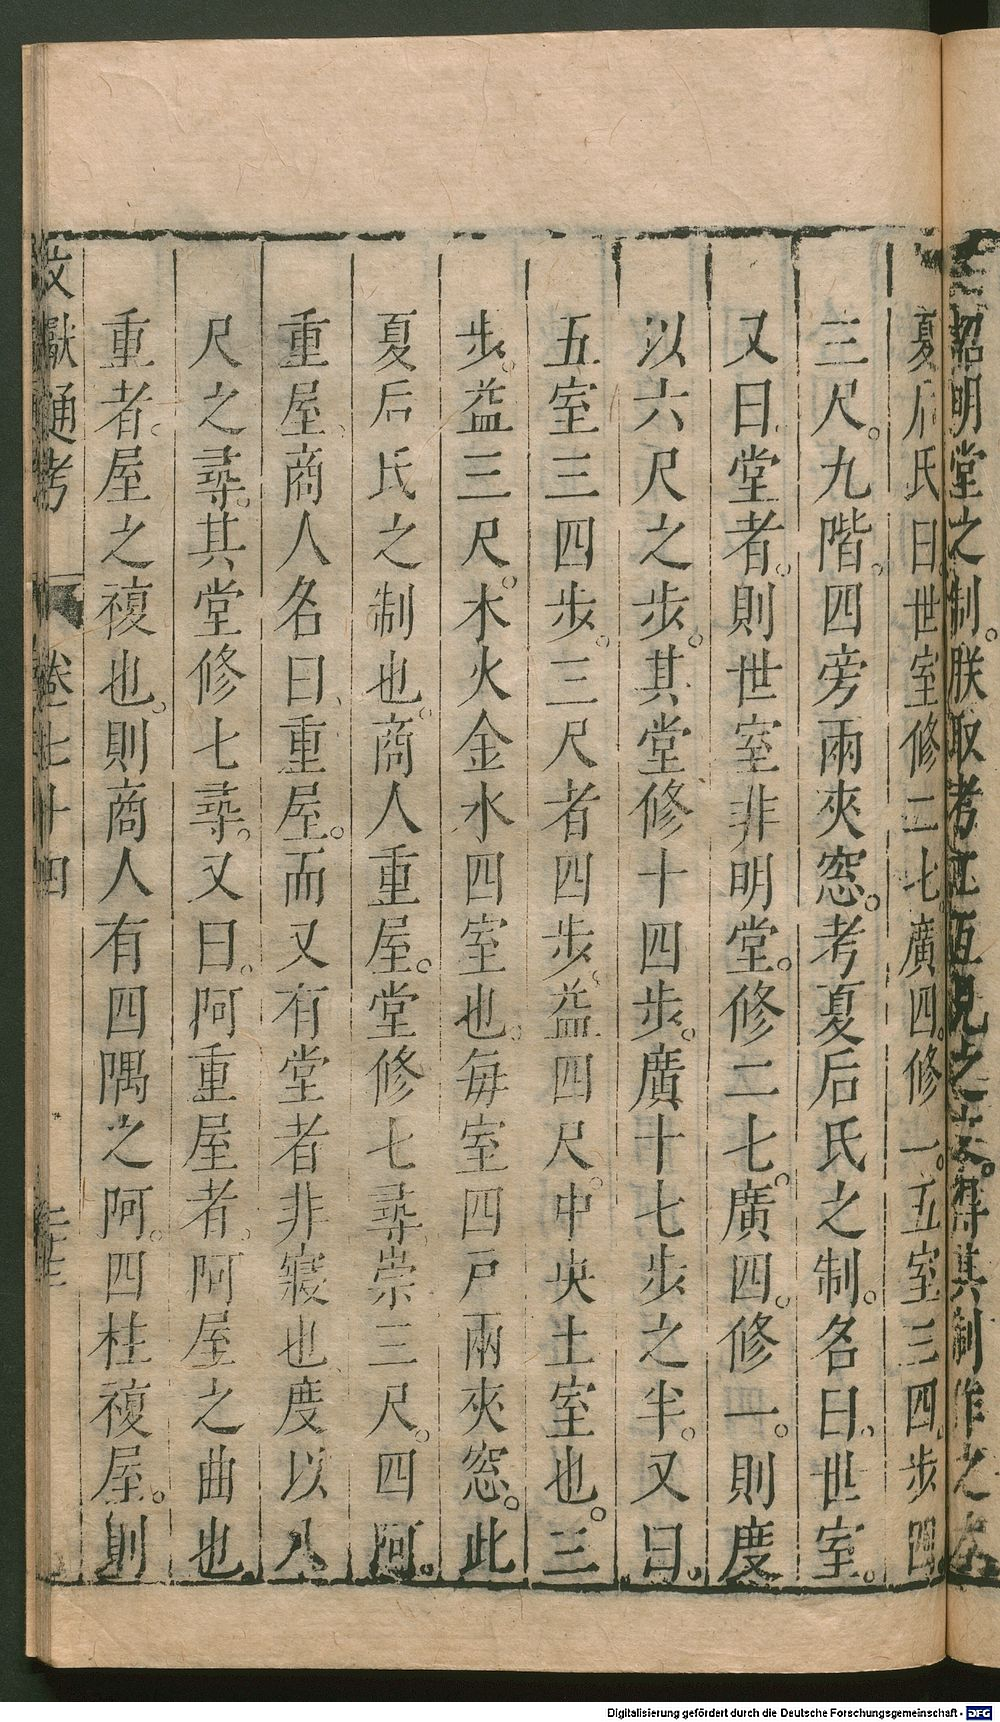 詔明堂之制。朕取考工互見之文。得其制作之本
夏后氏曰。世室修二七。廣四。修一。五室三四步四
三尺。九階。四旁兩夾窓。考夏后氏之制。名曰世室。
又曰堂者。則世室非明堂。修二七。廣四。修一。則度
以六尺之步。其堂修十四步。廣十七步之半。又曰。
五室三四步。三尺者四步。益四尺。中央土室也。三
步。益三尺。木火金水四室也。每室四戸兩夾窓。此
夏后氏之制也。商人重屋。堂修七尋。崇三尺。四阿。
重屋。商人名曰重屋。而又有堂者非寢也度以八
尺之尋。其堂修七尋。又曰。阿重屋者。阿屋之曲也
重者。屋之複也。則商人有四隅之阿。四柱複屋。則
文獻通考 卷七十四
Digitalisierung gefördert durch die Deutsche Forschungsgemeinschaft - DFG